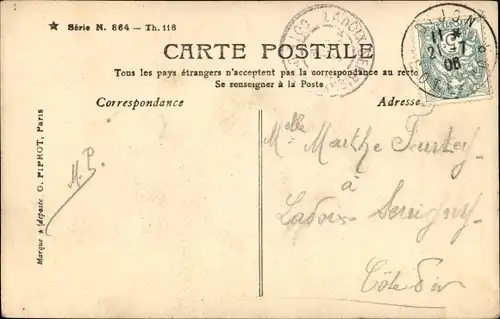 ★ Série N. 864 - Th. 118
CARTE POSTALE
Tous les pays étrangers n'acceptent pas la correspondance au recto
Se renseigner à la Poste
Correspondance
Adresse
LADOIX
DIJON
11 *
2 - 1
06
Melle Marthe
à
Ladoix-Serrigny
Côte d'or
M. P.
Marque ★ déposée G. PIPROT, Paris